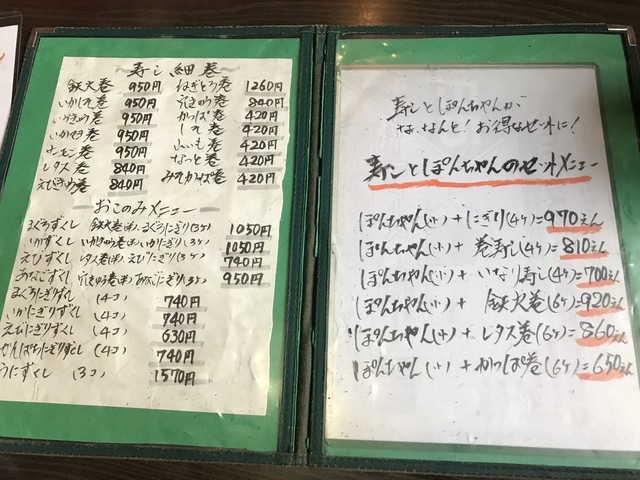 寿し細巻
鉄火巻 950円 ねぎとろ巻 1260円
いかしそ巻 950円 穴きゅう巻 840円
いかきゅう巻 950円 かっぱ巻 420円
いかやき巻 950円 しそ巻 420円
サーモン巻 950円 山いも巻 420円
レタス巻 840円 なっと巻 420円
えびきゅう巻 840円 みそかっぱ巻 420円
おこのみメニュー
まぐろずくし 鉄火巻(半)まぐろにぎり(3ケ) 1050円
いかずくし いかきゅう巻(半)いかにぎり(3ケ) 1050円
えびずくし レタス巻(半)えびにぎり(3ケ) 790円
あなごずくし 穴きゅう巻(半)あなごにぎり(3ケ) 950円
まぐろにぎりずくし (4コ) 740円
いかにぎりずくし (4コ) 740円
えびにぎりずくし (4コ) 630円
かんぱちにぎりずくし (4コ) 740円
うにずくし (3コ) 1570円
寿しとぽんちゃんが
な、なんと！お得なセットに！
寿しとぽんちゃんのセットメニュー
ぽんちゃん(小)+にぎり(4ケ)=970えん
ぽんちゃん(小)+巻寿し(4ケ)=810えん
ぽんちゃん(小)+いなり寿し(4ケ)=700えん
ぽんちゃん(小)+鉄火巻(6ケ)=920えん
ぽんちゃん(小)+レタス巻(6ケ)=860えん
ぽんちゃん(小)+かっぱ巻(6ケ)=650えん